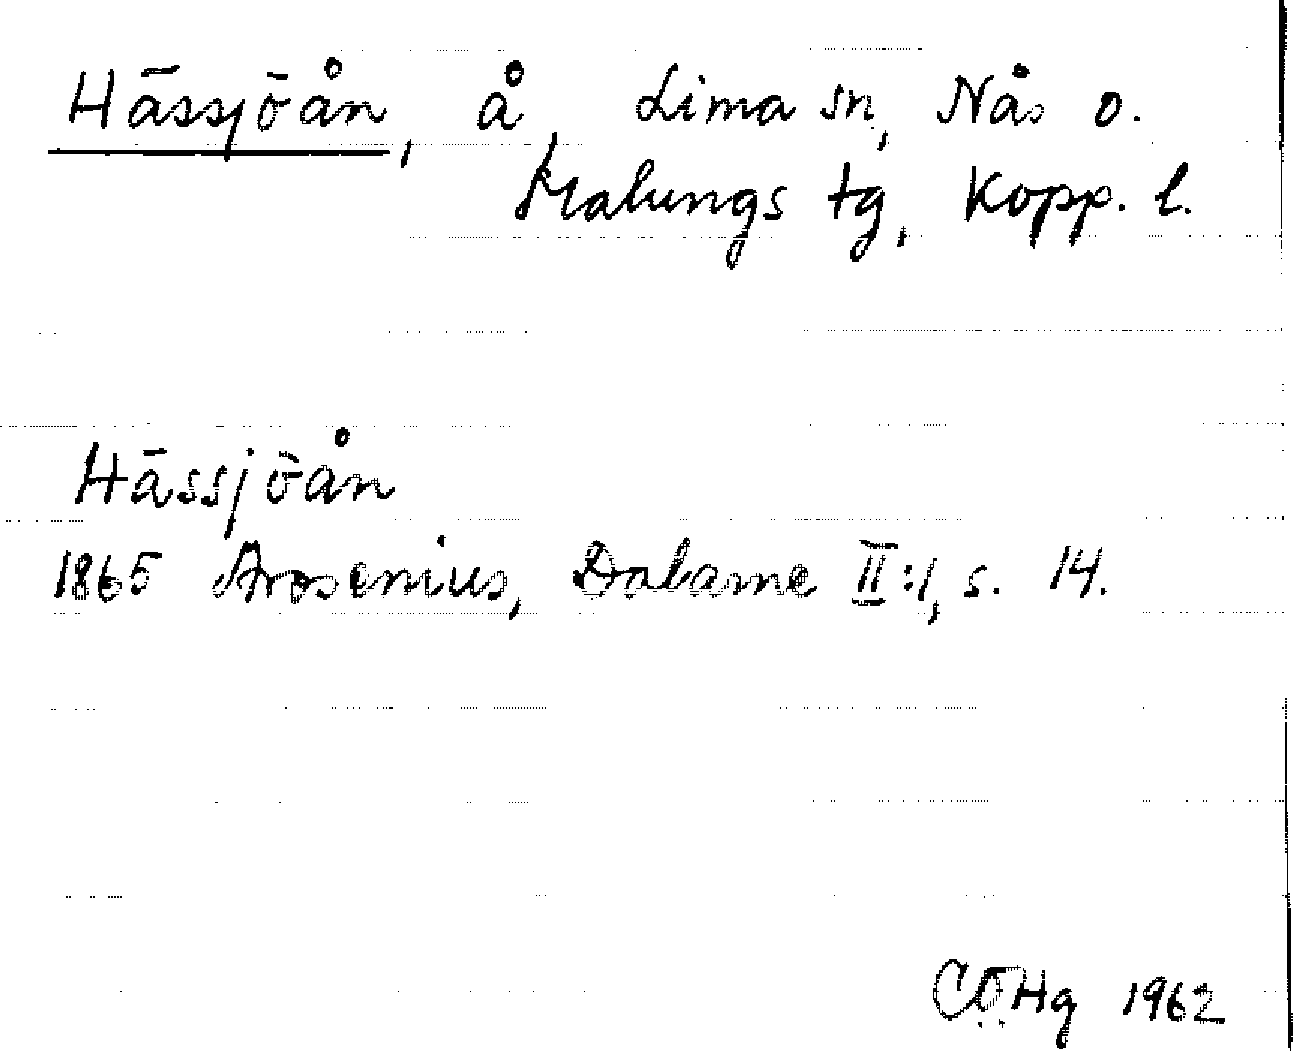 Hässjöån, å, Lima sn, Nås o.
Malungs tg, Kopp. l.
Hässjöån
1865 Arosenius, Dalarne II:1, s. 14.
CÖHg 1962